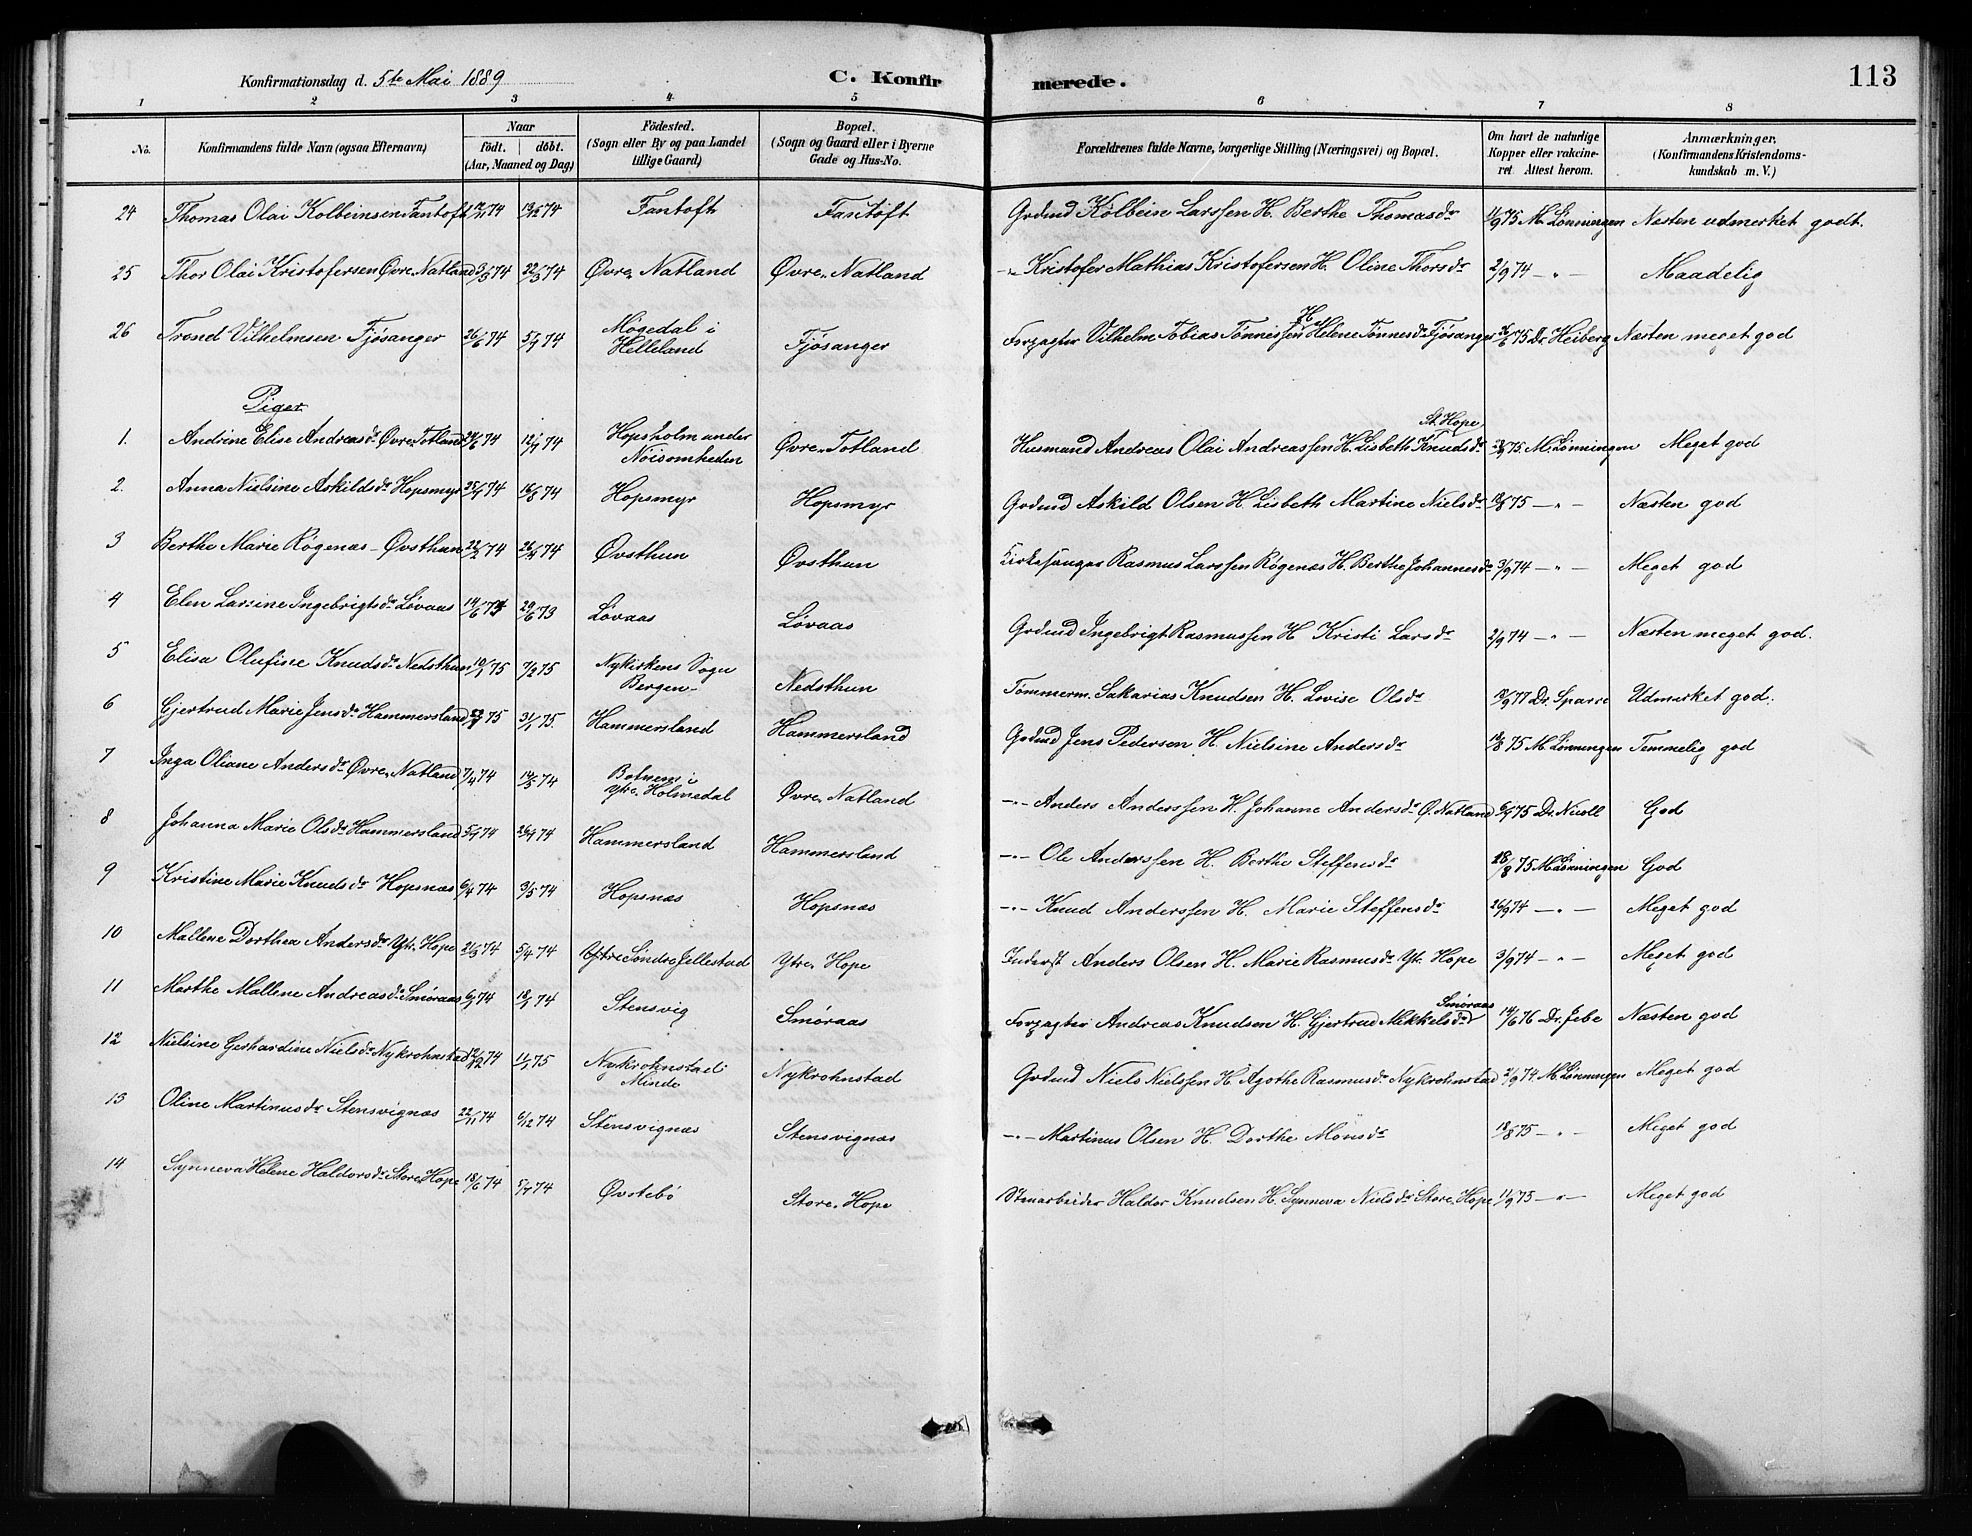 Konfirmationsdag d. 5te Mai 1889 C. Konfirmerede. 113
1 2 3 4 5 6 7 8
No. Konfirmandens fulde Navn (ogsaa Efternavn) Naar födt. döbt. (Aar, Maaned og Dag) Födested. (Sogn eller By og paa Landet tillige Gaard) Bopæl. (Sogn og Gaard eller i Byerne Gade og Hus-No. Forældrenes fulde Navne, borgerlige Stilling (Næringsvei) og Bopæl. Om havt de naturlige Kopper eller vakcineret. Attest herom. Anmærkninger. (Konfirmandens Kristendomskundskab m. V.)
24 Thomas Olai Kolbeinsen Fantoft 74 74 Fantoft Fantoft Grdmd Kolbein Larssen H. Berthe Thomasdr 11/9 75 M. Lønningen Næsten udmerket godt.
25 Thor Olai Kristofersen Øvre Natland 74 22/3 74 Øvre Natland Øvre Natland -"- Kristofer Mathias Kristofersen H. Oline Thorsdr 2/9 74 -"- Maadelig
26 Trend Vilhelmsen Fjøsanger 26/6 74 5/7 74 Møgedal i Helleland Fjøsanger Forpagter Vilhelm Tobias Tønnessen H Helene Tønnesdr Fjøsanger 26/6 75 Dr. Heiberg Næsten meget god
Piger
1. Andrine Elise Andreasdr Øvre Totland 74 12/7 74 Hopsholm under Nøisomheden Øvre Totland Husmand Andreas Olai Andreassen H. Lisbeth Knudsdr St. Hope 75 M. Lønningen Meget god
2. Anna Nielsine Askildsdr Hopsmyr 25/7 74 16/8 74 Hopsmyr Hopsmyr Grdmd Askild Olsen H. Lisbeth Martine Nielsdr 18/8 75 -"- Næsten god
3 Berthe Marie Røgenæs-Øvsthun 22/2 74 26/4 74 Øvsthun Øvsthun Kirkesanger Rasmus Larssen Røgenæs H. Berthe Johannesdr 3/9 74 -"- Meget god
4 Elen Larsine Ingebrigtsdr Løvaas 14/6 73 29/6 73 Løvaas Løvaas Grdmd Ingebrigt Rasmussen H Kristi Larsdr 2/9 74 -"- Næsten meget god.
5 Elisa Olufine Knudsdr Nedsthun 10/1 75 7/2 75 Nykirkens Sogn Bergen Nedsthun Tømmerm. Sakarias Knudsen H. Lovise Olsdr 77 Dr. Sparre Udmerket god.
6 Gjertrud Marie Jensdr Hammersland 75 31/1 75. Hammersland Hammersland Grdmd Jens Pedersen H. Nielsine Andersdr 18/8 75 M. Lønningen Temmelig god
7 Inga Oliane Andersdr Øvre Natland 7/4 74 14/5 74 Botnem i Ytre Holmedal Øvre Natland -"- Anders Anderssen H. Johanne Andersdr Ø. Natland 75 Dr. Nicoll God
8 Johanna Marie Olsdr Hammersland 5/7 74 26/7 74 Hammersland Hammersland -"- Ole Anderssen H. Berthe Steffensdr 18/8 75 M Lønningen God
9 Kristine Marie Knudsdr Hopsnæs 6/4 74 3/5 74 Hopsnæs Hopsnæs -"- Knud Anderssen H. Marie Steffensdr 26/9 74 -"- Meget god
10 Mallene Dorthea Andersdr Ytr. Hope 21/3 74 5/4 74 Ytre Søndre Jellestad Ytre Hope Inderst Anders Olsen H. Marie Rasmusdr Yt. Hope 3/9 74 -"- Meget god
11 Marthe Mallene Andreasdr Smøraas 74 74 Stensvig Smøraas Forpagter Andreas Knudsen H. Gjertrud Mekkelsdr Smøraas 14/6 76 Dr. Jebe Næsten god
12 Nielsine Gerhardine Nielsdr Nykrohnstad 74 1/1 75 Nykrohnstad Minde Nykrohnstad Grdmd Niels Nielssen H Agothe Rasmusdr Nykrohnstad 2/9 74 M. Lønningen Meget god
13 Oline Martinusdr Stensvignæs 22/11 74 6/12 74 Stensvignæs Stensvignæs -"- Martinus Olsen H. Dorthe Monsdr 18/8 75 -"- Meget god
14 Synneva Helene Haldorsdr Store Hope 18/6 74 5/7 74 Øvstebø Store Hope Stenarbeider Haldor Knudsen H. Synneva Nielsdr Store Hope 11/9 75 -"- Meget god